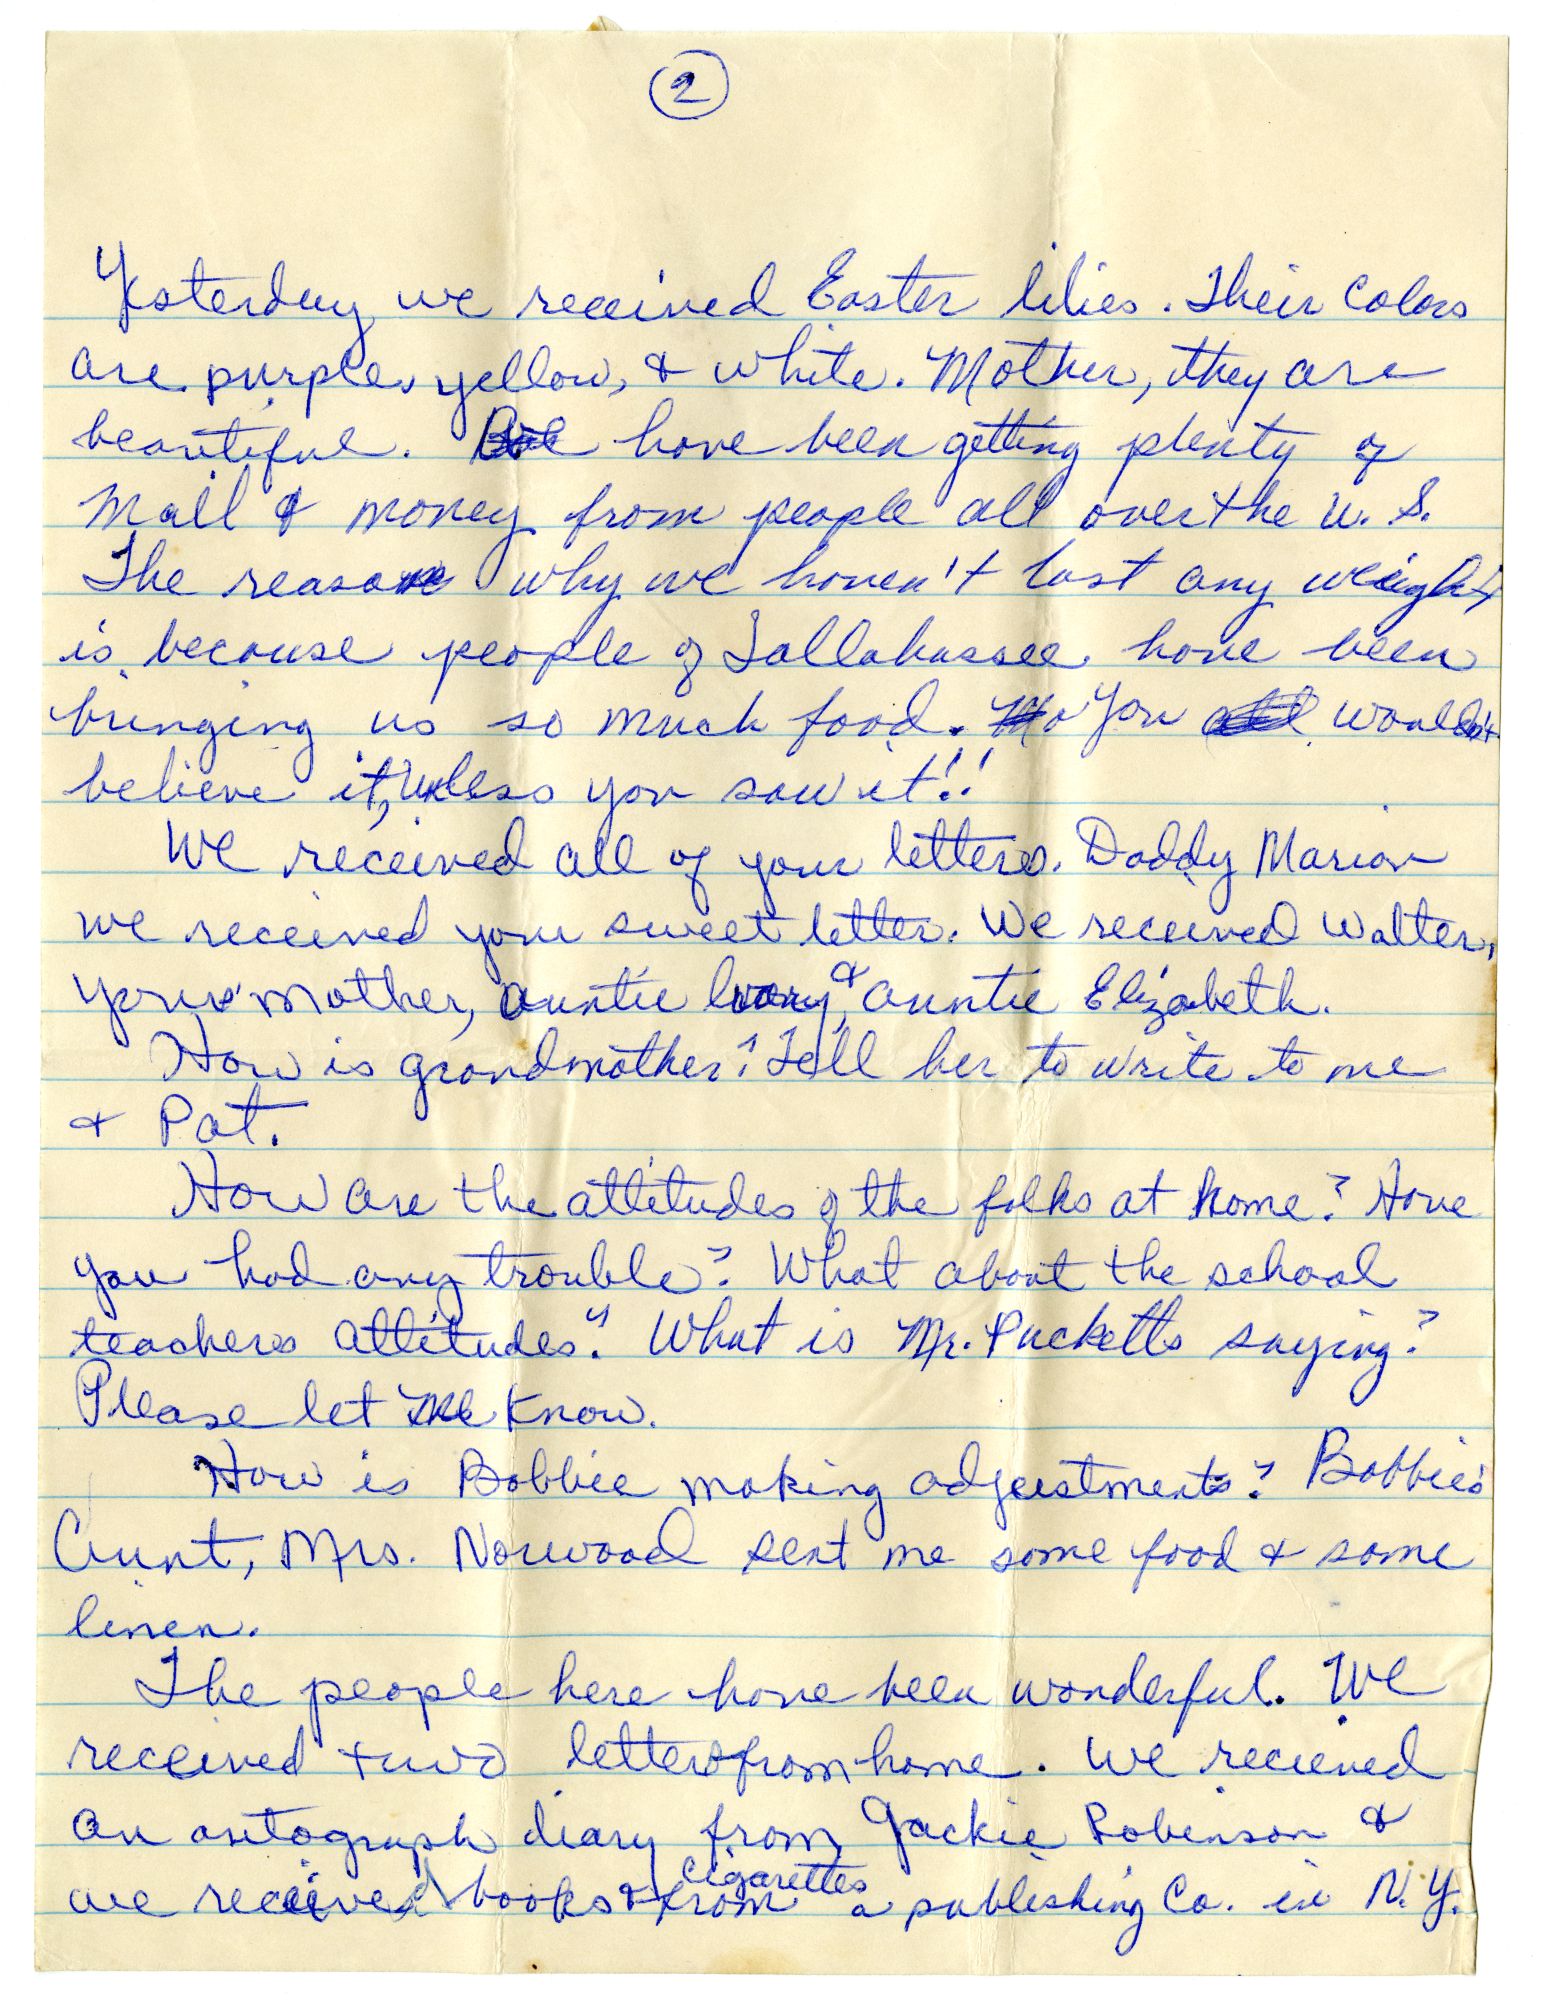 2
Yesterday we received Easter lilies. Their colors
are purple, yellow, & white. Mother, they are
beautiful. have been getting plenty of
mail & money from people all over the U. S.
The reason why we haven't lost any weight
is because people of Tallahassee have been
bringing us so much food. You wouldn't
believe it, unless you saw it!!
We received all of your letters. Daddy Marion
we received your sweet letter. We received Walter,
your mother, auntie Ivory, & auntie Elizabeth.
How is grandmother? Tell her to write to me
& Pat.
How are the attitudes of the folks at home? Have
you had any trouble? What about the school
teachers attitudes? What is Mr. Pucketts saying?
Please let me know.
How is Bobbie making adjustments? Bobbie's
Aunt, Mrs. Norwood sent me some food & some
linen.
The people here have been wonderful. We
received two letters from home. We recieved
an autograph diary from Jackie Robinson &
we received books & cigarettes from a publishing Co. in N.Y.